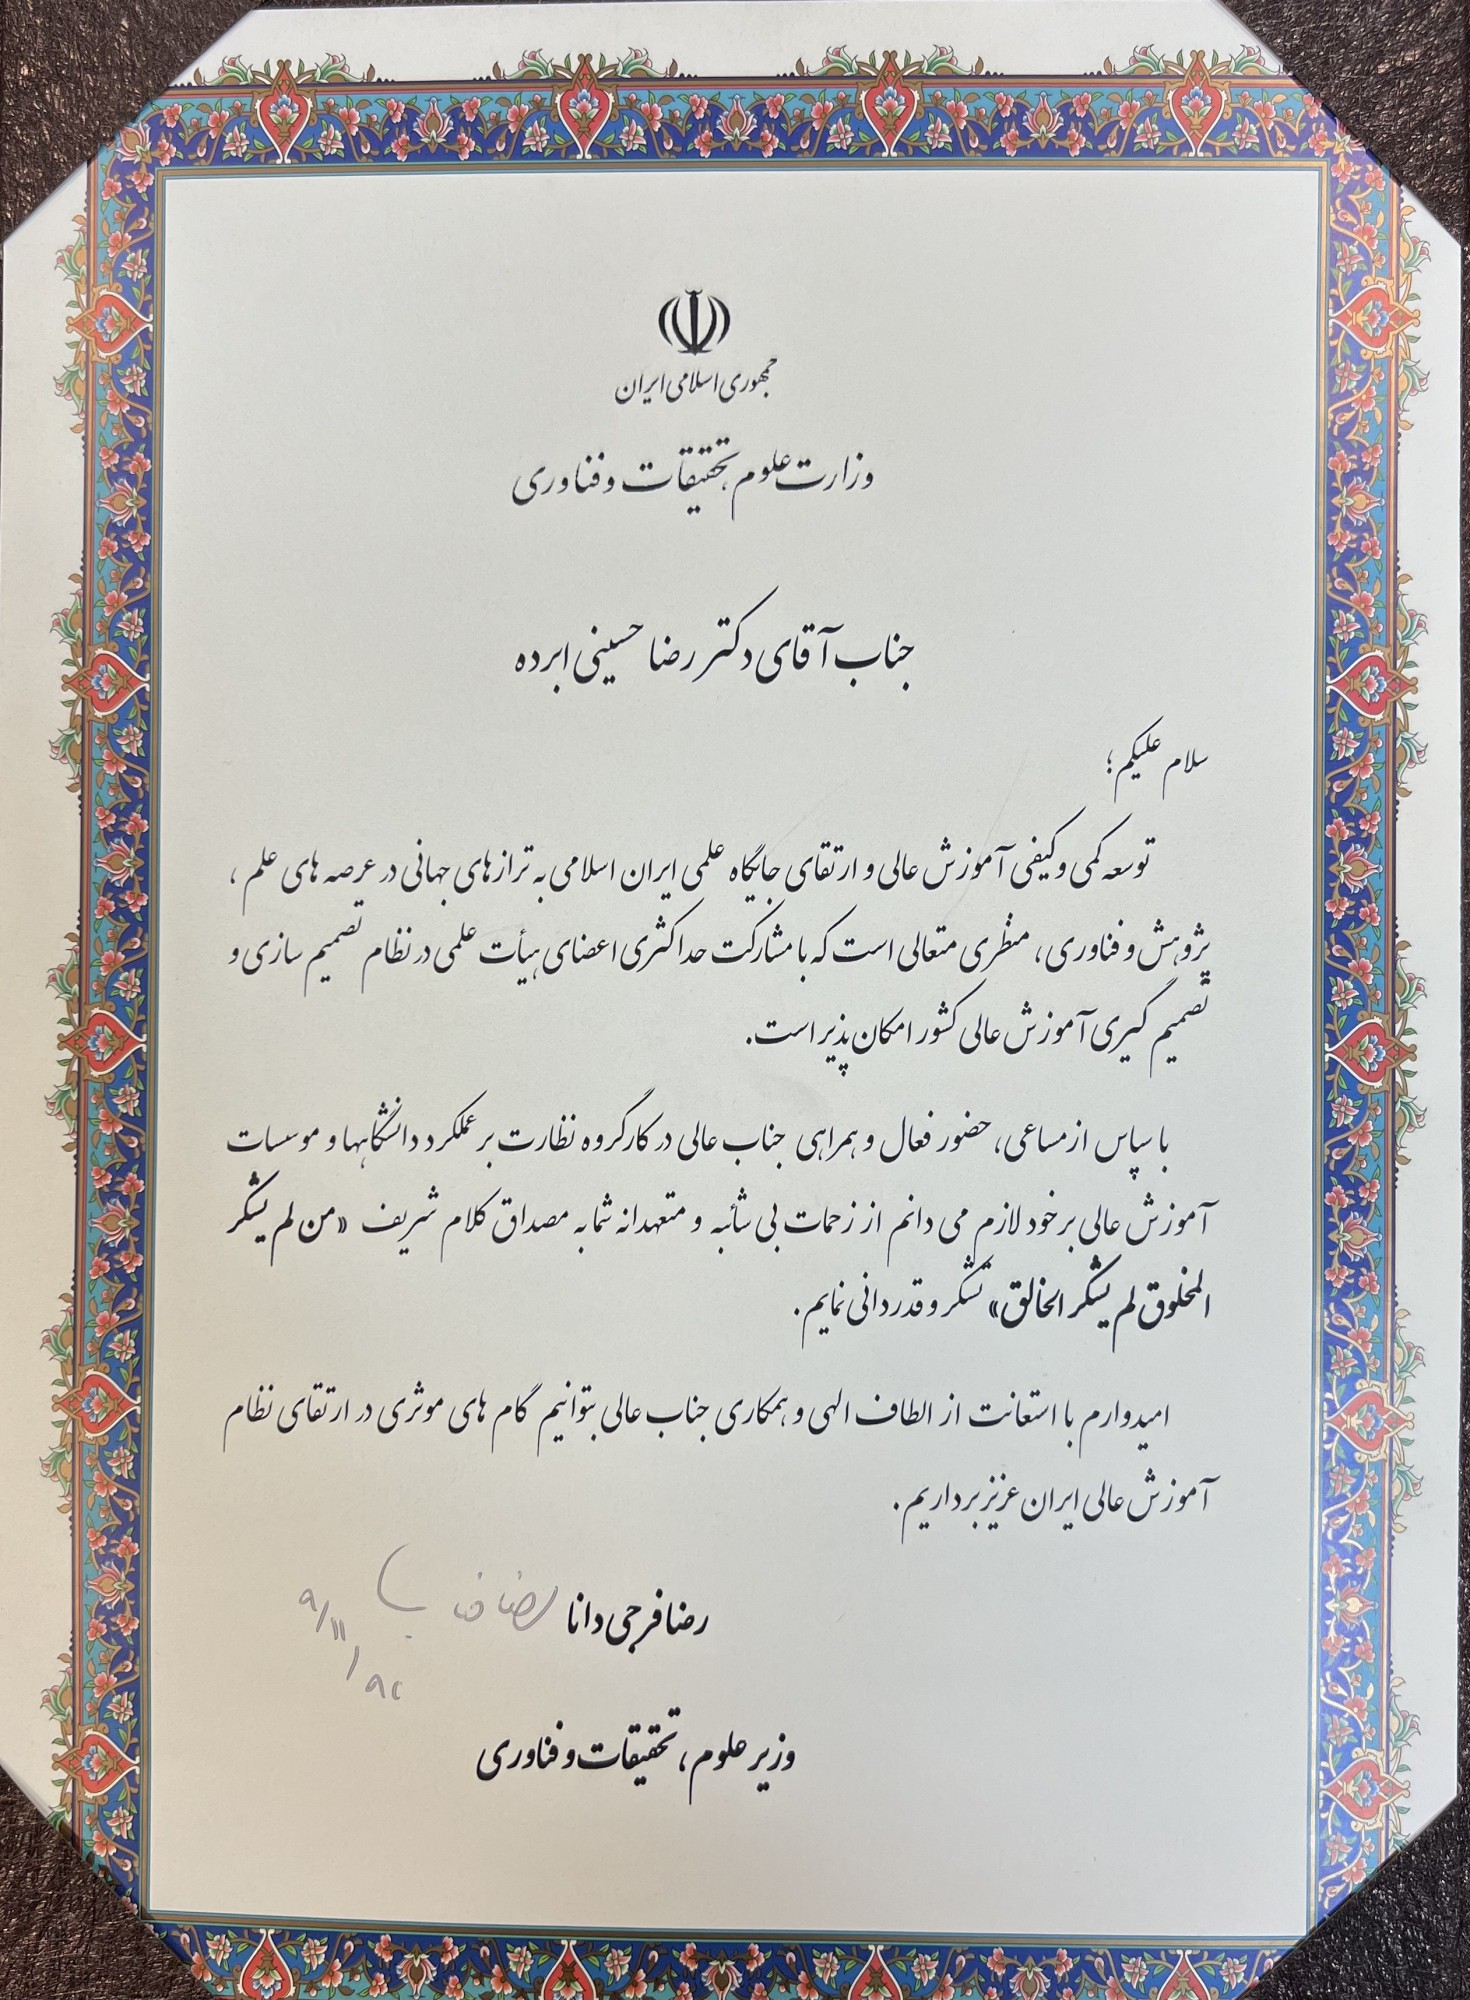 جمهوری اسلامی ایران
وزارت علوم، تحقیقات و فناوری
جناب آقای دکتر رضا حسینی ابرده
سلام علیکم؛
توسعه کمی و کیفی آموزش عالی و ارتقای جایگاه علمی ایران اسلامی به ترازهای جهانی در عرصه های علم ،
پژوهش و فناوری، منظری متعالی است که با مشارکت حداکثری اعضای هیأت علمی در نظام تصمیم سازی و
تصمیم گیری آموزش عالی کشور امکان پذیر است.
با سپاس از مساعی، حضور فعال و همراهی جناب عالی در کارگروه نظارت بر عملکرد دانشگاهها و موسسات
آموزش عالی بر خود لازم می دانم از زحمات بی شائبه و متعهدانه شما به مصداق کلام شریف «من لم یشکر
المخلوق لم یشکر الخالق» تشکر و قدردانی نمایم.
امیدوارم با استعانت از الطاف الهی و همکاری جناب عالی بتوانیم گام های موثری در ارتقای نظام
آموزش عالی ایران عزیز برداریم.
رضا فرجی دانا
۹/۱۱/۹۲
وزیر علوم، تحقیقات و فناوری